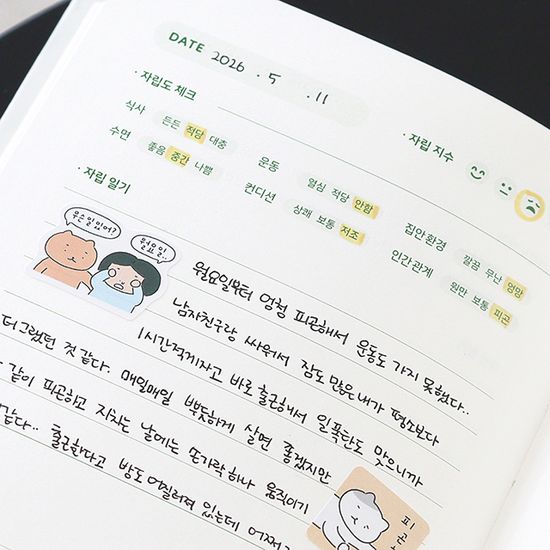 DATE 2026 . 5 . 11
· 자립도 체크
· 자립 지수
식사 든든 적당 대충
수면 좋음 중간 나쁨
운동 열심 적당 안함
컨디션 상쾌 보통 저조
집안환경 깔끔 무난 엉망
인간관계 원만 보통 피곤
· 자립 일기
무슨일있어?
월요일..
월요일부터 엄청 피곤해서 운동도 가지 못했다..
남자친구랑 싸워서 잠도 많은 내가 평소보다
1시간적게자고 바로 출근해서 일폭탄도 맞으니까
더 그랬던 것 같다. 매일매일 뿌듯하게 살면 좋겠지만
같이 피곤하고 지치는 날에는 손가락하나 움직이기
같다.. 출근한다고 방도 어질러져 있는데
피곤